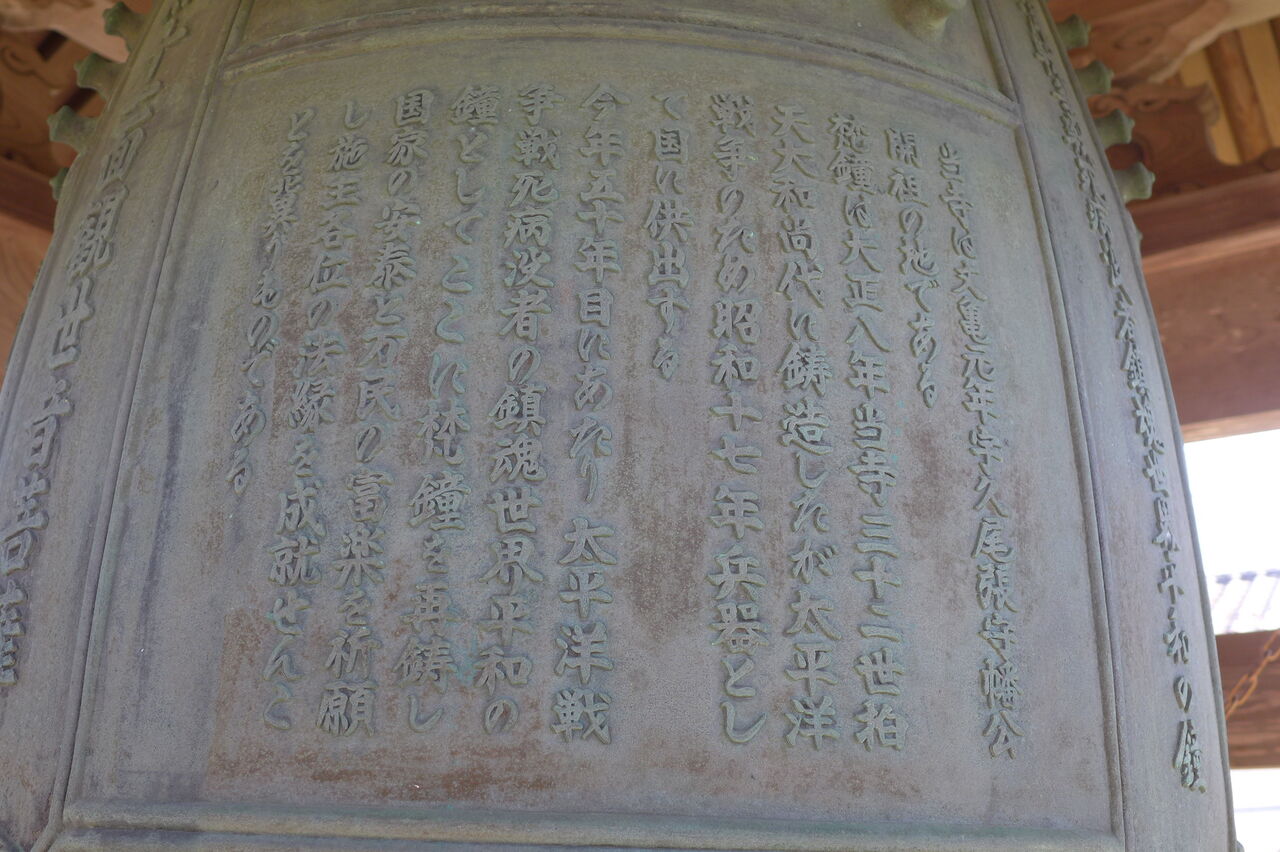 当寺は文亀元年宇久尾張守幡公
開祖の地である
梵鐘は大正八年当寺三十二世拍
天大和尚代に鋳造したが太平洋
戦争のため昭和十七年兵器とし
て国に供出する
今年五十年目にあたり太平洋戦
争戦死病没者の鎮魂世界平和の
鐘としてここに梵鐘を再鋳し
国家の安泰と万民の富楽を祈願
し施主各位の法縁を成就せんこ
とを糞うものである
南無観世音菩薩
世界平和の鐘